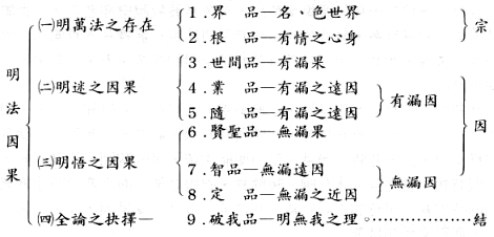 明法因果
㈠明萬法之存在
1.界　品—名、色世界
2.根　品—有情之心身
宗
㈡明迷之因果
3.世間品—有漏果
4.業　品—有漏之遠因
5.隨　品—有漏之遠因
有漏因
㈢明悟之因果
6.賢聖品—無漏果
7.智品—無漏遠因
8.定　品—無漏之近因
無漏因
因
㈣全論之抉擇—
9.破我品—明無我之理。………………結